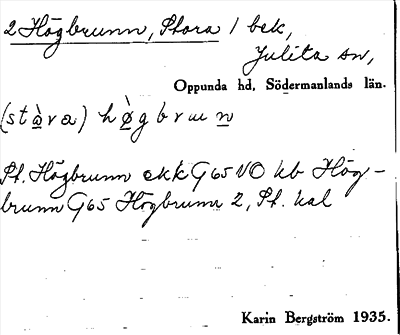 2 Högbrunn, Stora 1 bek,
Julita sn,
Oppunda hd, Södermanlands län.
(stàra) hø̀gbrun
St. Högbrunn ekk G65 NO kb Hög-
brunn G65 Högbrunn 2, St. kal
Karin Bergström 1935.